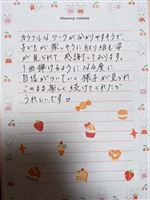 Cheery rabbit
カラフルなワークが分かりやすそうで、
子どもが楽しそうに取り組む姿
が見られて、感謝しております。
1曲弾けるようになる度に
自信がついていく様子が見られ
このまま楽しく続けてくれたら
うれしいです。